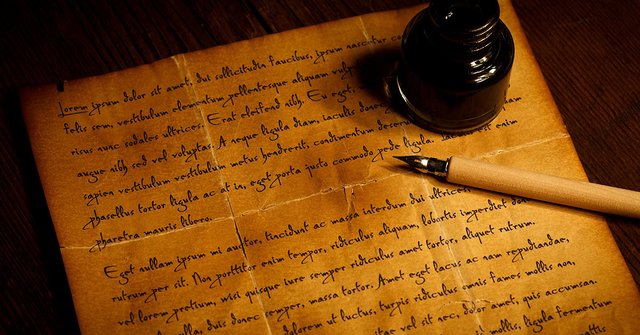 Lorem ipsum dolor sit amet, dui sollicitudin faucibus, ipsum nascetur
felis sem, vestibulum elementum pellentesque aliquam
risus nunc sodales ultrices. Erat eleifend nibh. Eu eget,
augue nibh sed vel voluptas. A neque ligula diam, iaculis donec
sapien vestibulum vestibulum metus hendrerit, condimentum
phasellus tortor ligula ac at in, eget porta justo commodo pede ligula. enim
pharetra mauris libero.
Eget nullam ipsum mi auctor, tincidunt ac massa interdum dui ultrices
rutrum per sit. Non porttitor enim tempor, ridiculus aliquam, lobortis imperdiet
vel lorem pretium, wisi quisque iure semper ridiculus amet tortor, aliquet rutrum.
nulla, duis donec semper, massa tortor. Amet eget lacus ac nam repudiandae,
dolorem ut luctus, turpis ridiculus omnis fames mollis non,
nec, dolor amet, quis accumsan.
mollis, ligula fermentum